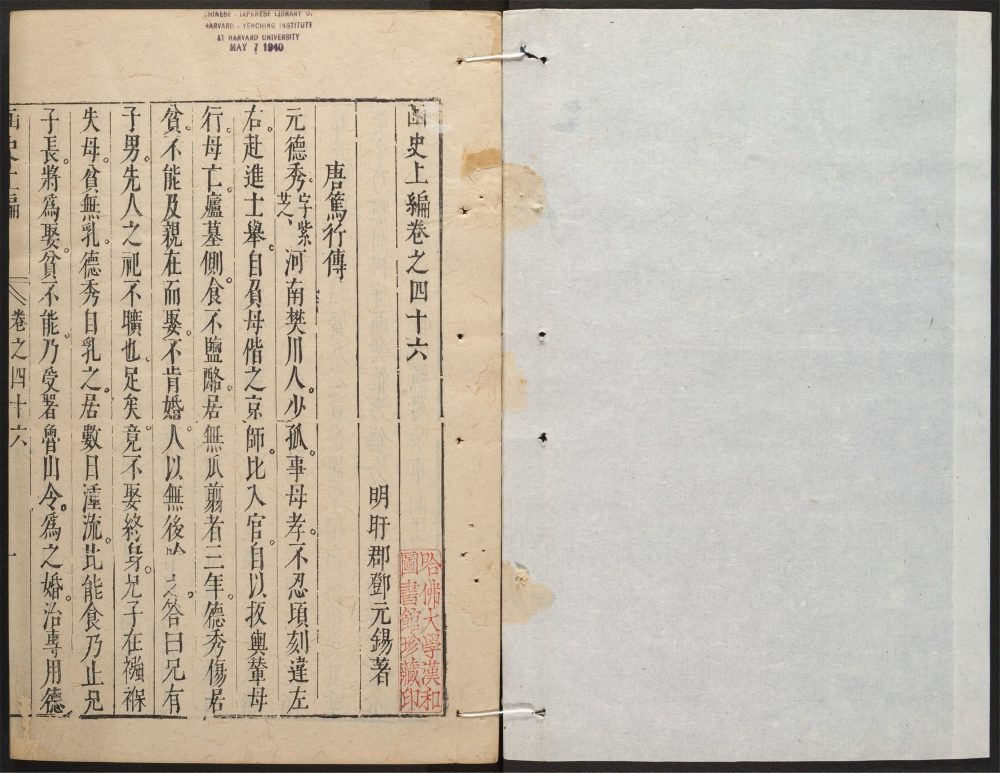 CHINESE - JAPANESE LIBRARY OF
HARVARD - YENCHING INSTITUTE
AT HARVARD UNIVERSITY
MAY 7 1940
函史上編卷之四十六
明盱郡鄧元錫著
哈佛大學漢和
圖書館珍藏印
唐篤行傳
元德秀字紫芝、河南樊川人。少孤。事母孝。不忍頃刻違左
右。赴進士舉。自負母偕之京師。比入官。自以扳輿輦母
行。母亡。廬墓側。食不鹽酪。居無爪翦者三年。德秀傷居
貧。不能及親在而娶。不肯婚。人以無後 之。答曰兄有
子男。先人之祀不曠也。足矣。竟不娶終身。兄子在襁褓
失母。貧無乳。德秀自乳之。居數日湩流。比能食乃止。兄
子長。將爲娶。貧不能。乃受署魯山令。爲之婚。治專用德
函史上編
卷之四十六
一